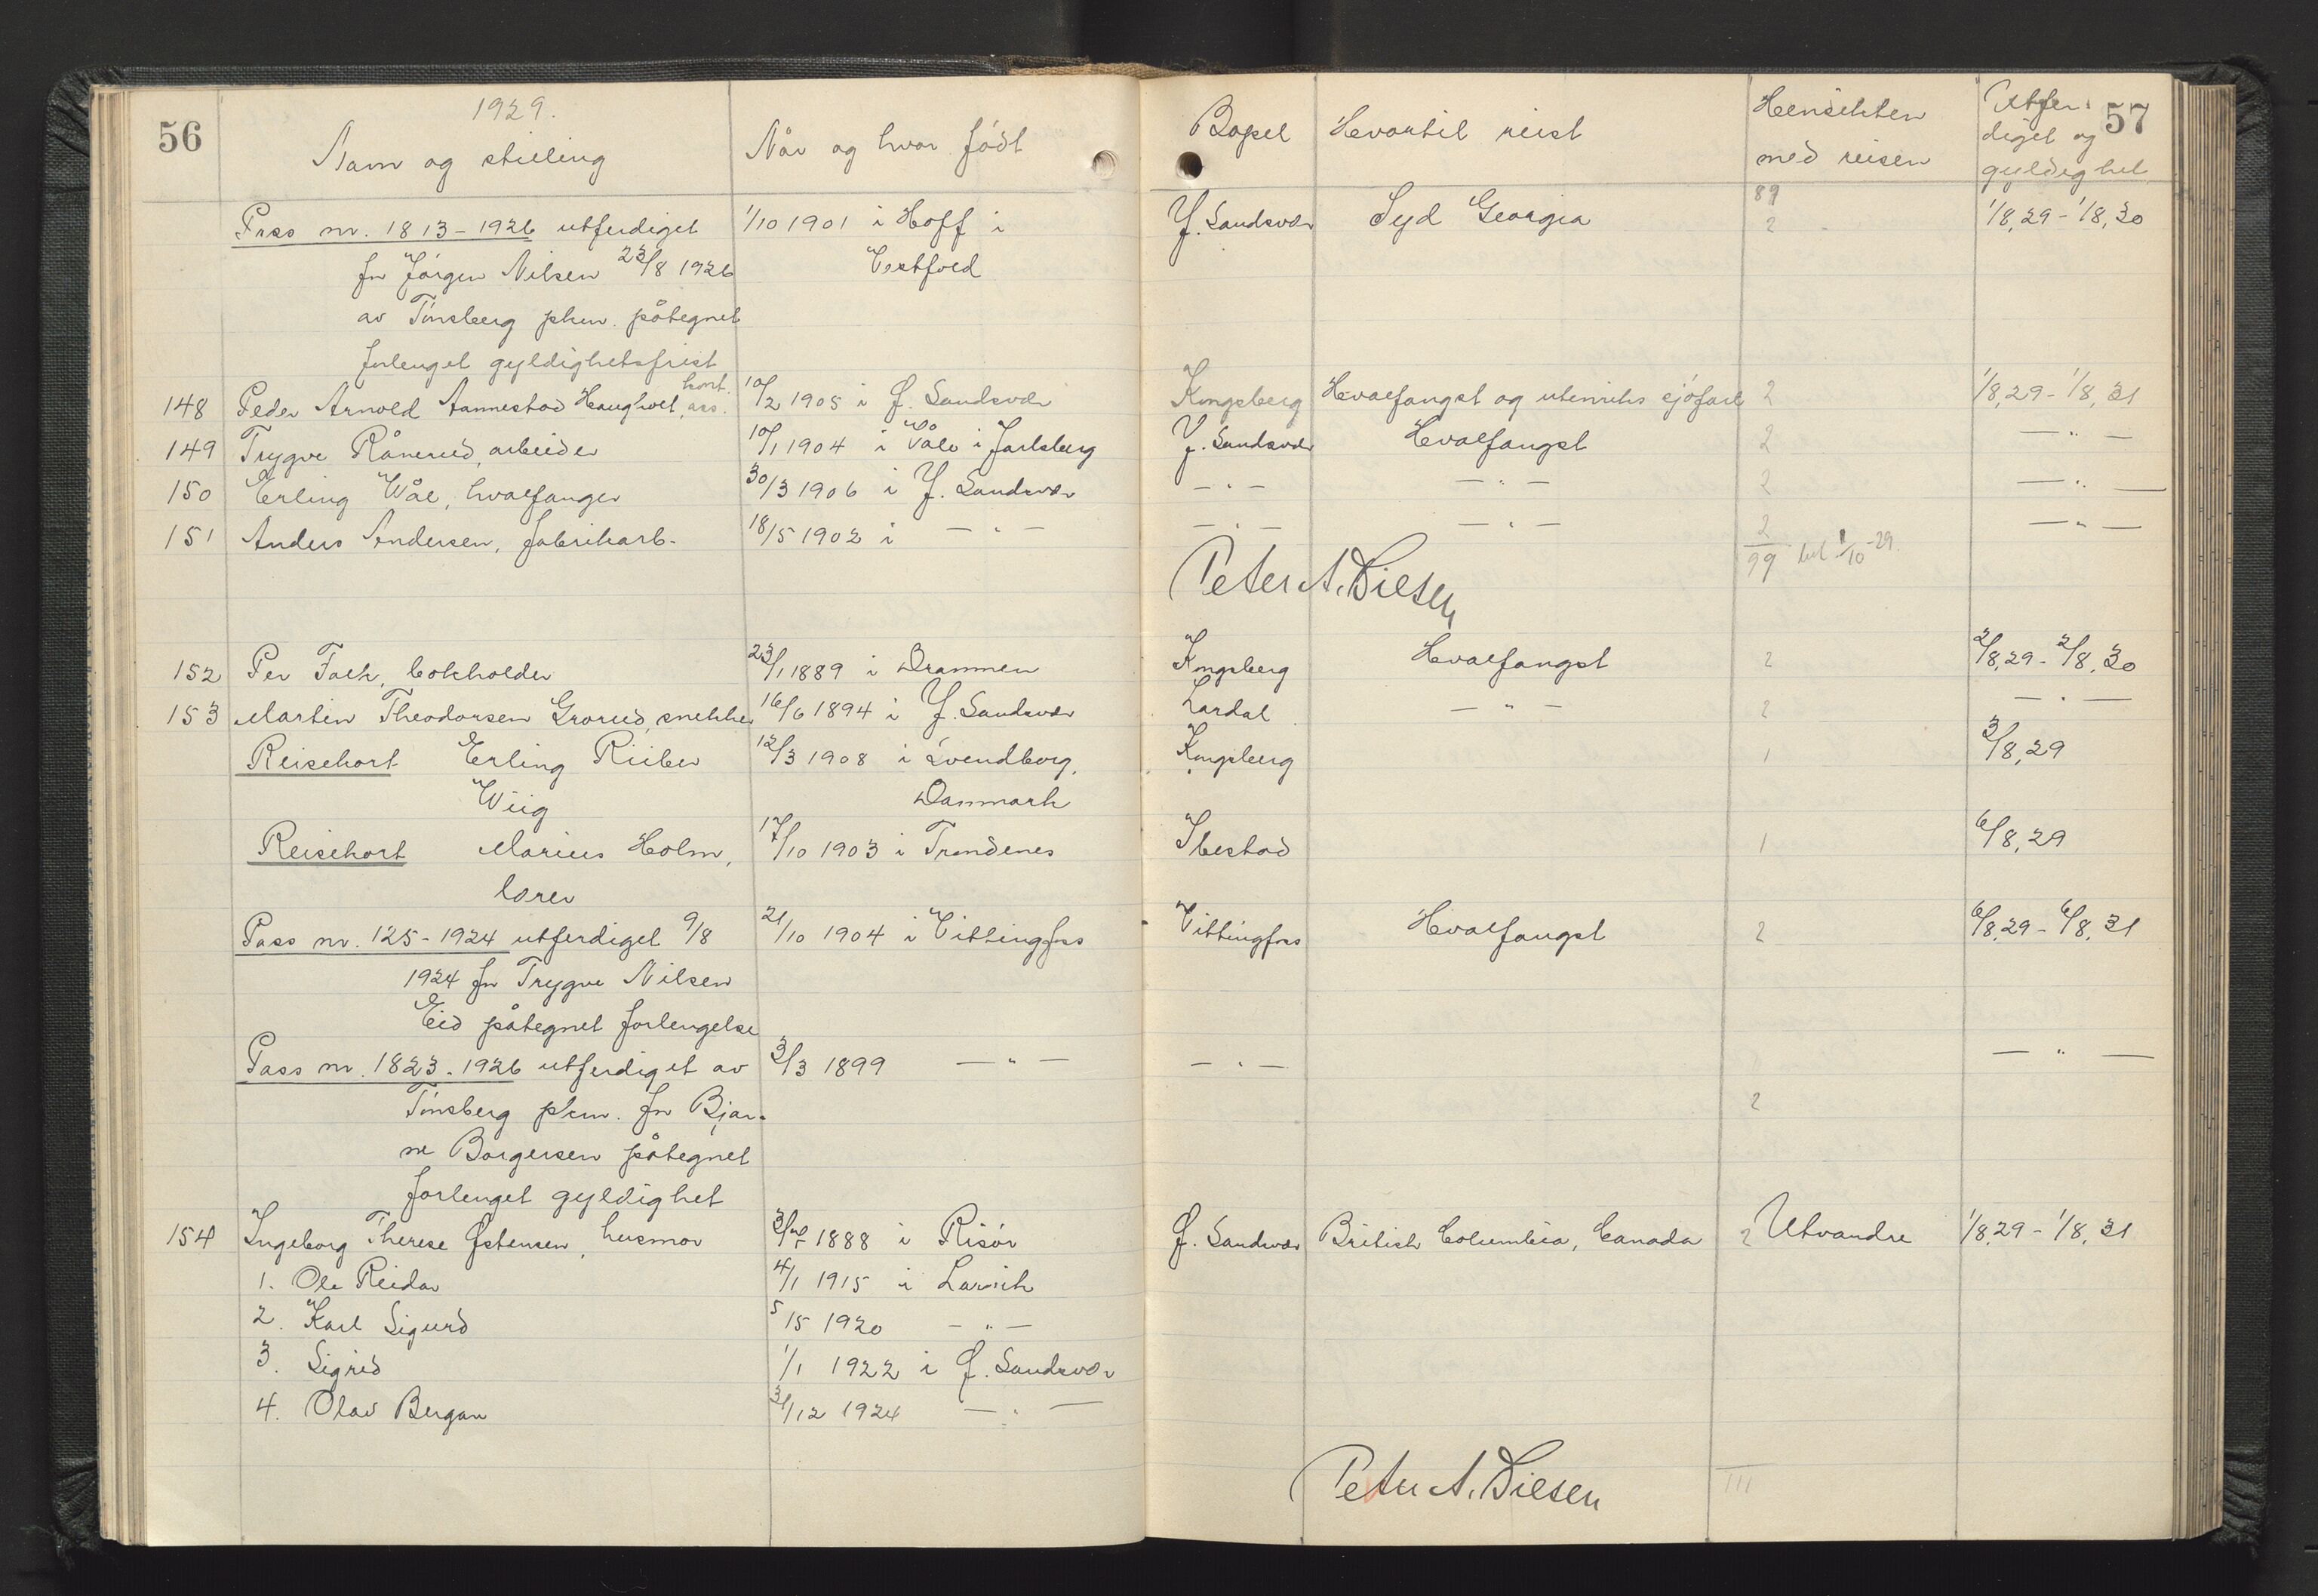 56
1929.
Navn og stilling
Når og hvor født
Bopel
Hvortil reist
Hensikten
med reisen
Utfer
diget og
gyldighet
57
Pass nr. 1813-1926 utferdiget
1/10 1901 i Hoff i
Y. Sandsvær
Syd Georgia
89
2
1/8,29 - 1/8,30
for Jörgen Nilsen 23/8 1926
Vestfold
av Tönsberg pkm. påtegnet
forlenget gyldighetsfrist
148 Peder Arnold Aannestad Haugholt, kont. ass.
10/2 1905 i Ø. Sandsvær
Kongsberg
Hvalfangst og utenriks sjöfart
2
1/8,29 - 1/8,31
149 Trygve Rånerud, arbeider
10/1 1904 i Våle i Jarlsberg
Y. Sandsvær
Hvalfangst
2
— " —
150 Erling Wål, hvalfanger
30/3 1906 i Y. Sandsvær
— " —
— " —
2
— " —
151 Anders Andersen, fabrikarb.
18/5 1902 i — " —
— " —
— " —
2
— " —
99 bet 1/10-29.
Peter A. Diesen
152 Per Falk, bokholder
23/1 1889 i Drammen
Kongsberg
Hvalfangst
2
2/8,29 - 2/8,30
153 Martin Theodorsen Grorud, snekker
16/6 1894 i Y. Sandsvær
Lardal
— " —
2
— " —
Reisekort Erling Riiber
12/3 1908 i Svendborg,
Kongsberg
1
3/8,29
Wiig
Danmark
Reisekort Marius Holm,
17/10 1903 i Trondenes
Ibestad
1
6/8,29
lærer
Pass nr. 125-1924 utferdiget 9/8
21/10 1904 i Vittingfoss
Vittingfoss
Hvalfangst
2
6/8,29 - 6/8,31
1924 for Trygve Nilsen
Eid påtegnet forlengelse
Pass nr. 1823-1926 utferdiget av
3/3 1899 — " —
— " —
— " —
Tönsberg pkm. for Bjar-
2
ne Borgersen påtegnet
forlenget gyldighet
154 Ingeborg Therese Østensen, husmor
1888 i Risör
Ø. Sandsvær
British Columbia, Canada
2 Utvandre
1/8,29 - 1/8,31
1. Ole Reidar
4/1 1915 i Larvik
2. Karl Sigurd
5/5 1920 — " —
3. Sigrid
1/1 1922 i Ø. Sandsvær
4. Olav Bergan
31/12 1924 — " —
Peter A. Diesen
111